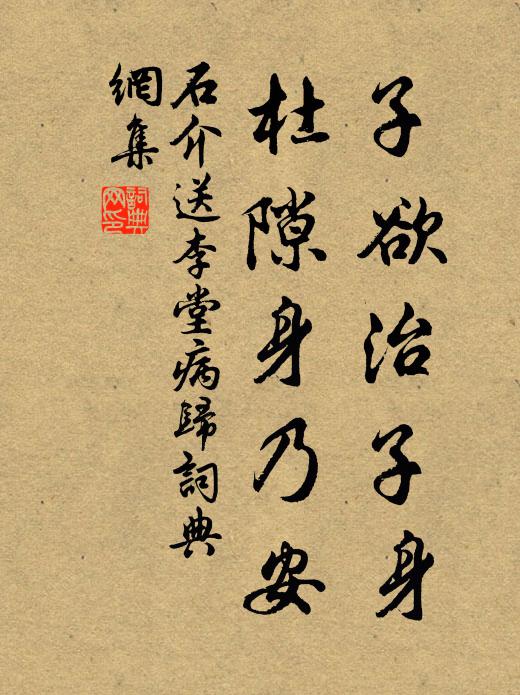 子欲治子身
杜隙身乃安
石介送李堂病歸詞典
網集
詞典
网印